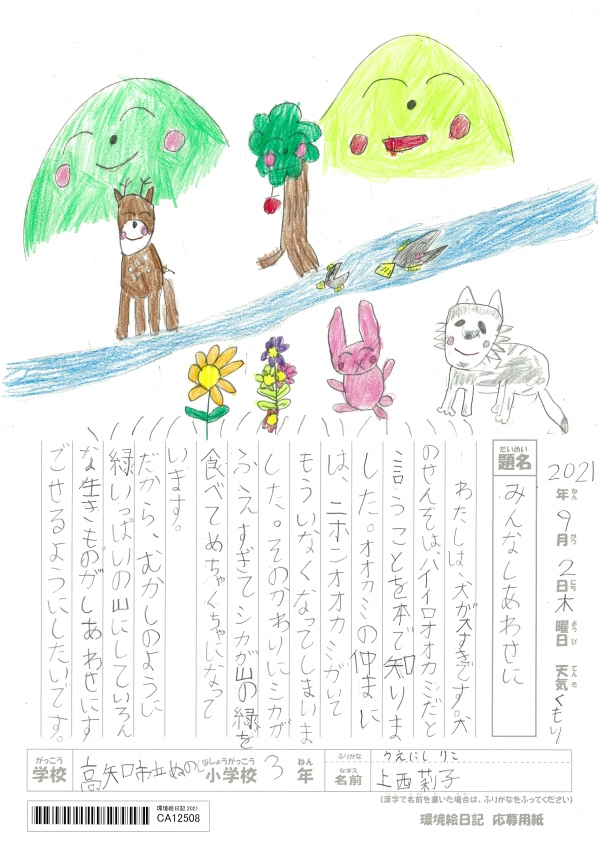 2021年9月2日木曜日 天気くもり
ねん がつ にち ようび てんき
だいめい
題名 みんなしあわせに
わたしは、犬がスきです。犬
のせんぞは、ハイイロオオカミだと
言うことを本で知りま
した。オオカミの仲まに
は、ニホンオオカミがいて
もういなくなってしまいま
した。そのかわりにシカが
ふえすぎてシカが山の緑を
食べてめちゃくちゃになって
います。
だから、むかしのように
緑いっぱいの山にしていろん
な生きものがしあわせにす
ごせるようにしたいです。
がっこう しょうがっこう ねん
学校 小学校 3年
ふりがな うえにしりこ
なまえ
名前 上西莉子
(漢字で名前を書いた場合は、ふりがなをふってください)
環境絵日記 2021
CA12508
環境絵日記 応募用紙